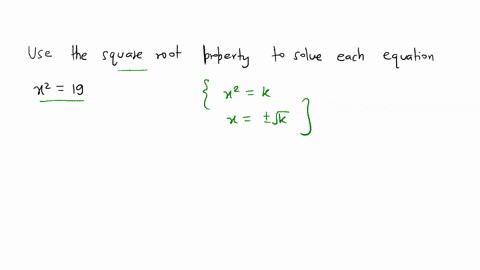 Use the square root property to solve each equation
x² = 19
{ x² = k
x = ±√k }